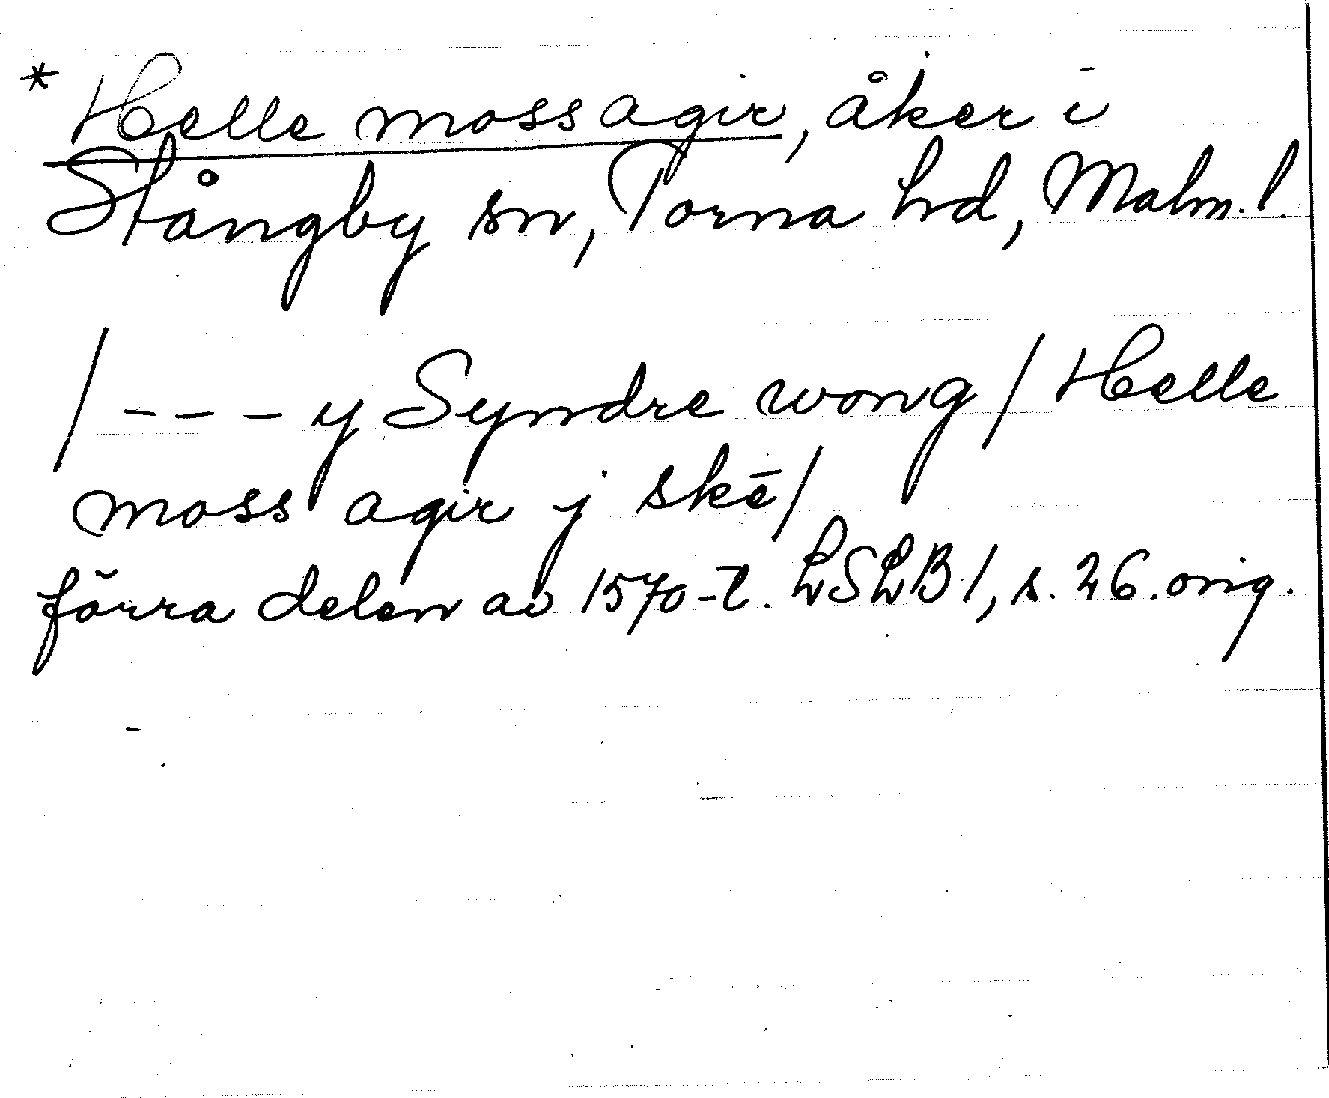 * Helle moss agir, åker i
Stångby sn, Torna hd, Malm. l.
/ - - - y Syndre wong / Helle
moss agir j skē /
förra delen av 1570-t. LSLB 1, s. 26. orig.